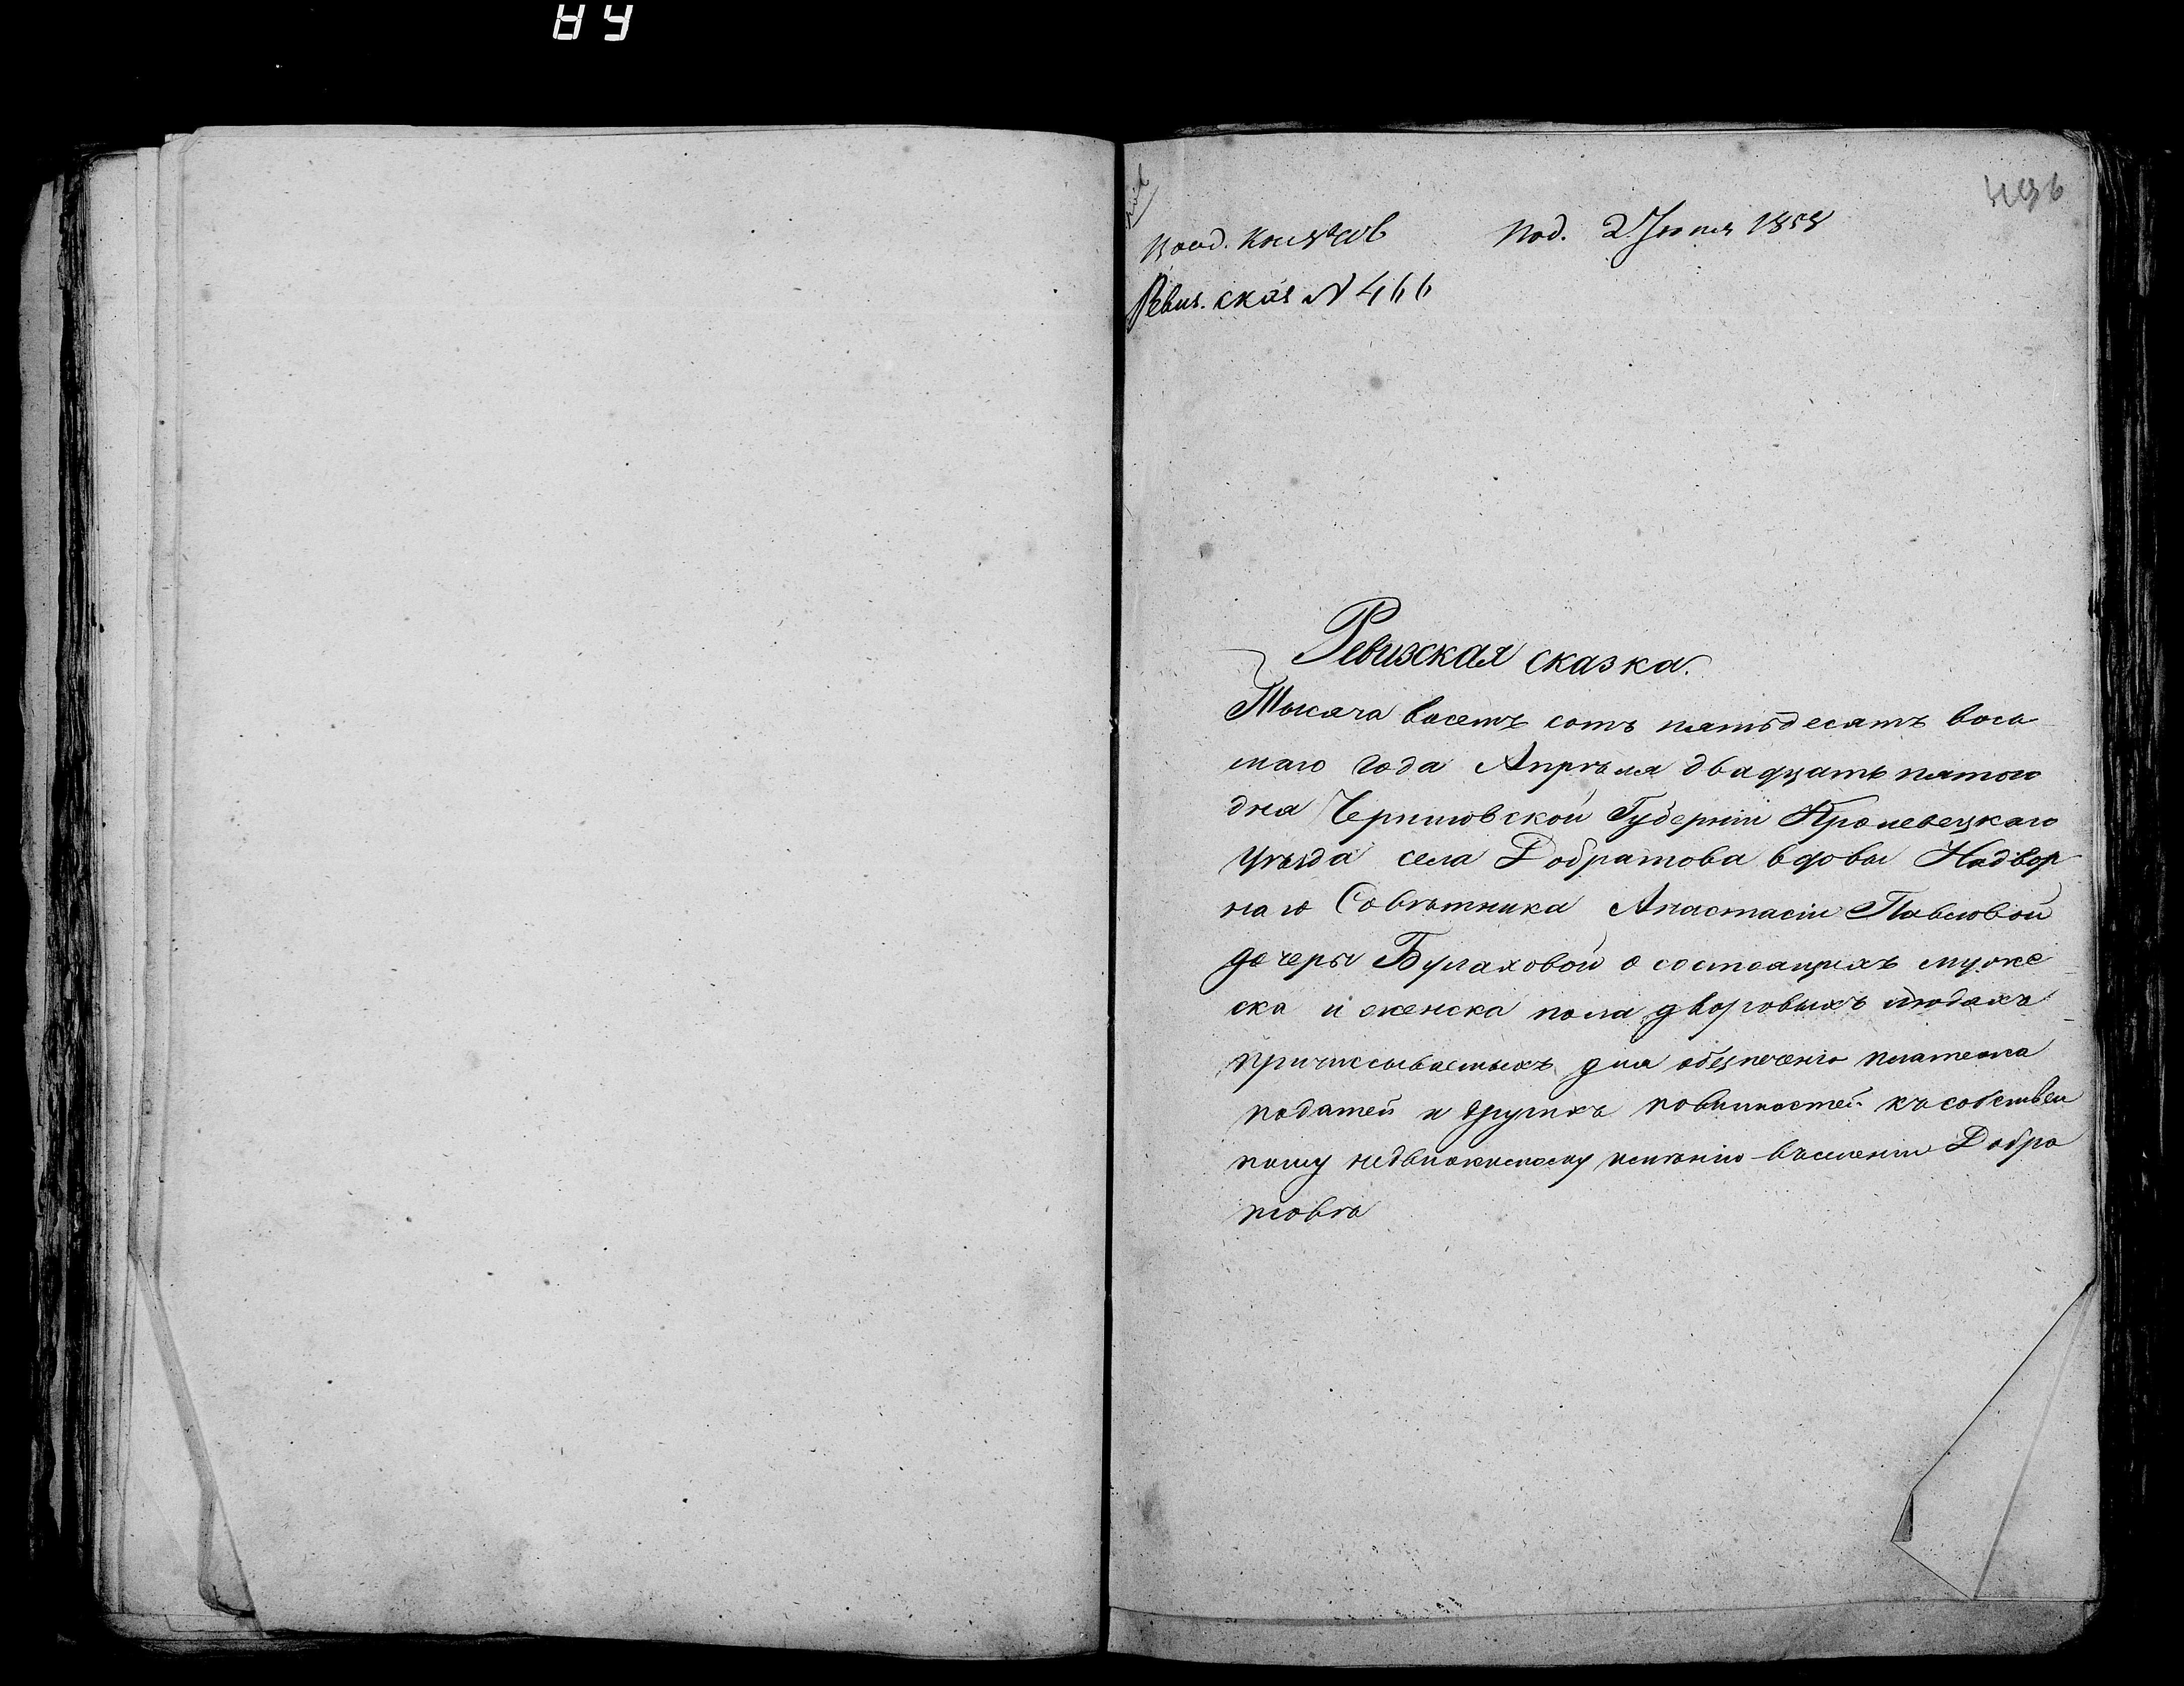 496
Под. 2 Июня 1858
Ревиз. скаᲂ N 466
Ревизская сказка.
Тысяча восемь сотъ пятьдесятъ вось
маго года Апрѣля двадцать пятого
дня Черниговской Губерніи Кролевецкаго
уѣзда села Добратова вдовы Надвор
наго Совѣтника Анастасіи Павловой
дочеры Булаховой о состоящихъ мужес
ска и женска пола дворовыхъ людяхъ
причисываемыхъ для обезпеченія платежа
податей и другихъ повинностей къ собствен
ному недвижимому имѣнію въ селеніи Добра
товѣ